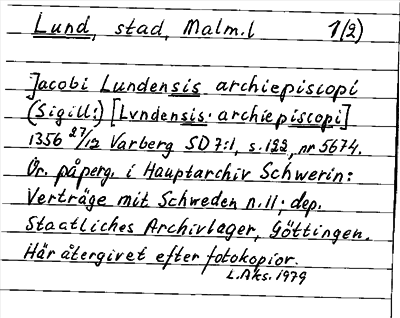 Lund, stad, Malm.l 1(2)
Jacobi Lundensis archiepiscopi
(Sigill:) [Lvndensis · archiepiscopi]
1356 27/12 Varberg SD 7:1, s. 122, nr 5674.
Or. på perg. i Hauptarchiv Schwerin:
Verträge mit Schweden n. 11; dep.
Staatliches Archivlager, Göttingen.
Här återgivet efter fotokopior.
L.Aks. 1979